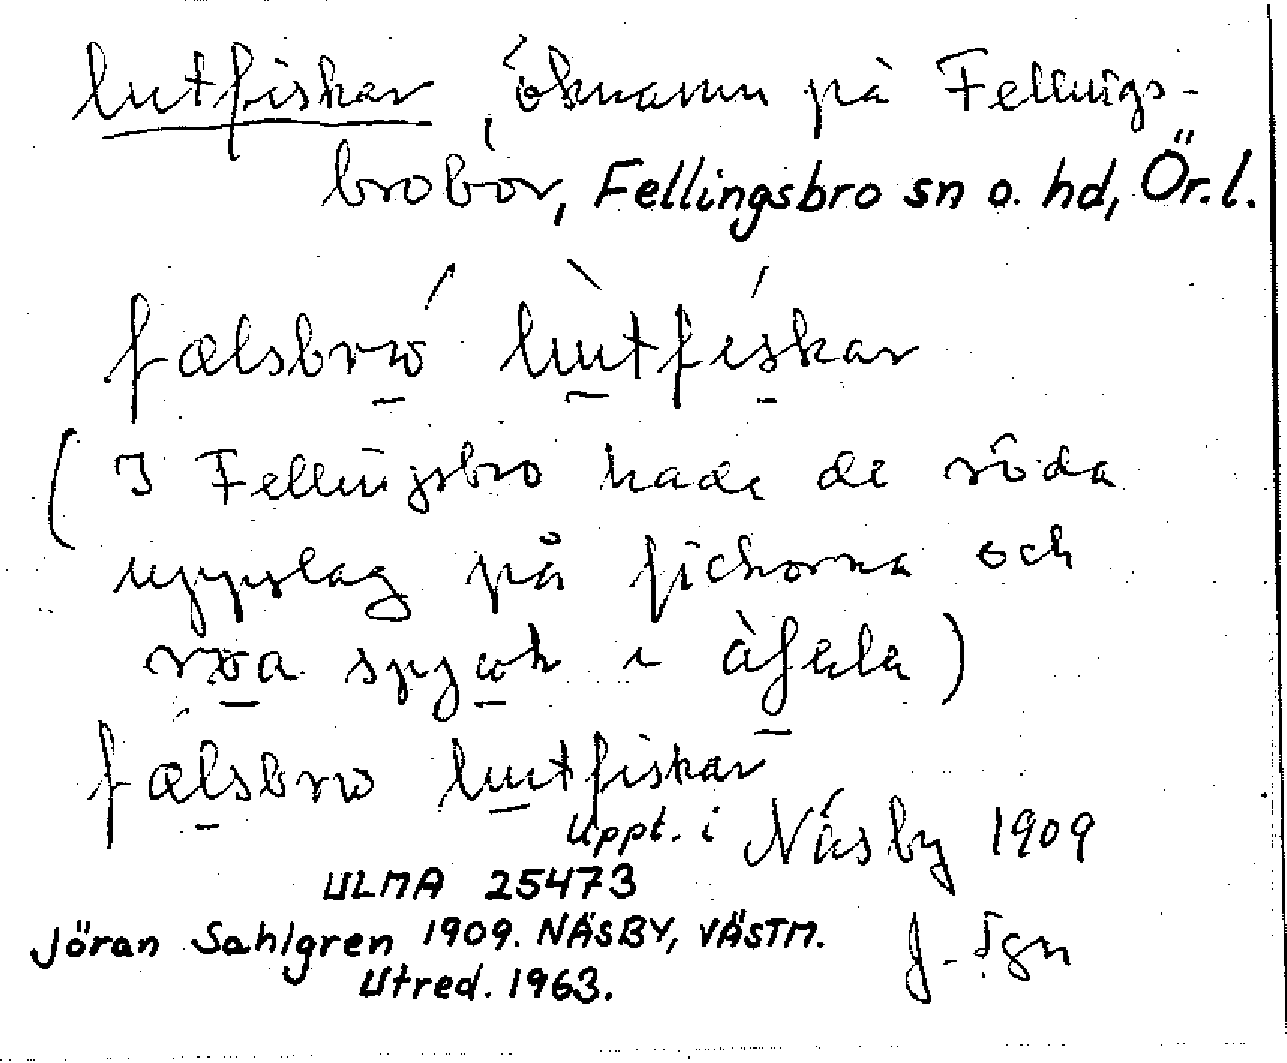 lutfiskar, öknamn på Fellings-
brobor, Fellingsbro sn o. hd, Ör.l.
fælsbrω lutfiskar
(I Fellingsbro hade de röda
uppslag på fickorna och
i
fælsbrω lutfiskar
Uppt. i Näsby 1909
ULMA 25473
Jöran Sahlgren 1909. NÄSBY, VÄSTM.
J. Sgn
Utred. 1963.